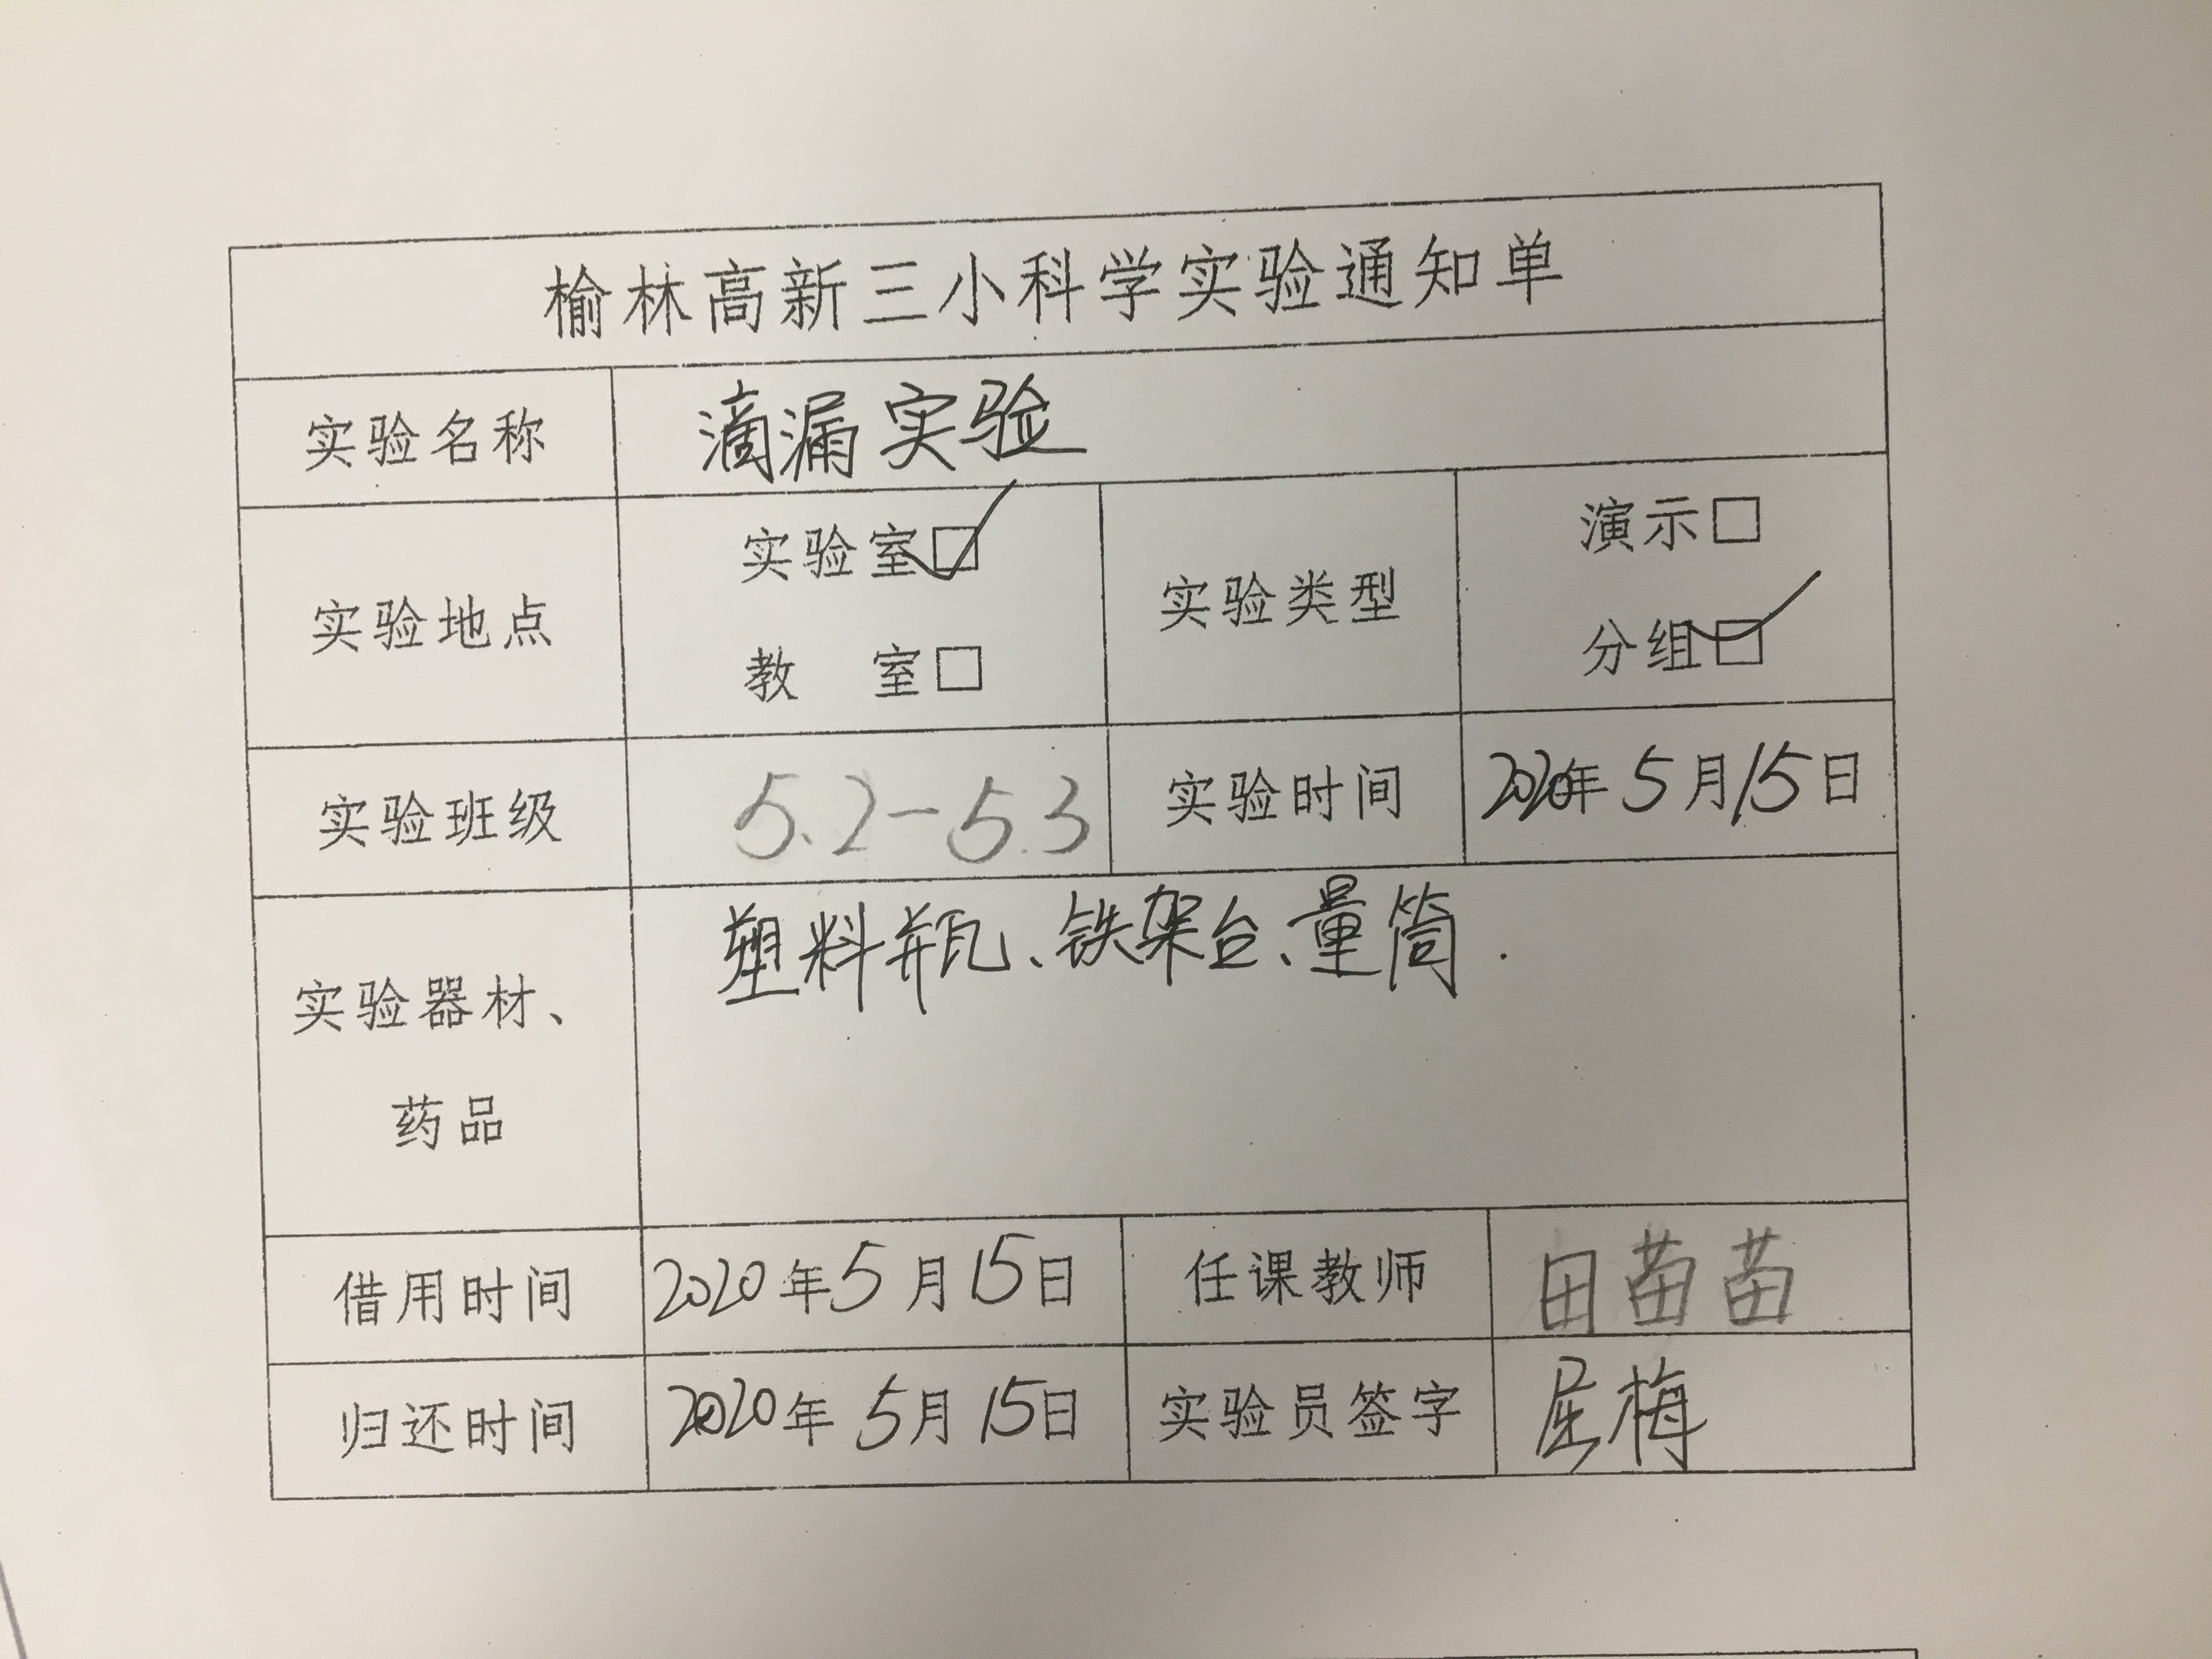 榆林高新三小科学实验通知单
实验名称 滴漏实验
实验地点 实验室☑ 教 室□ 实验类型 演示□ 分组☑
实验班级 5.2-5.3 实验时间 2020年5月15日
实验器材、药品 塑料瓶、铁架台、量筒.
借用时间 2020年5月15日 任课教师 田苗苗
归还时间 2020年5月15日 实验员签字 屈梅